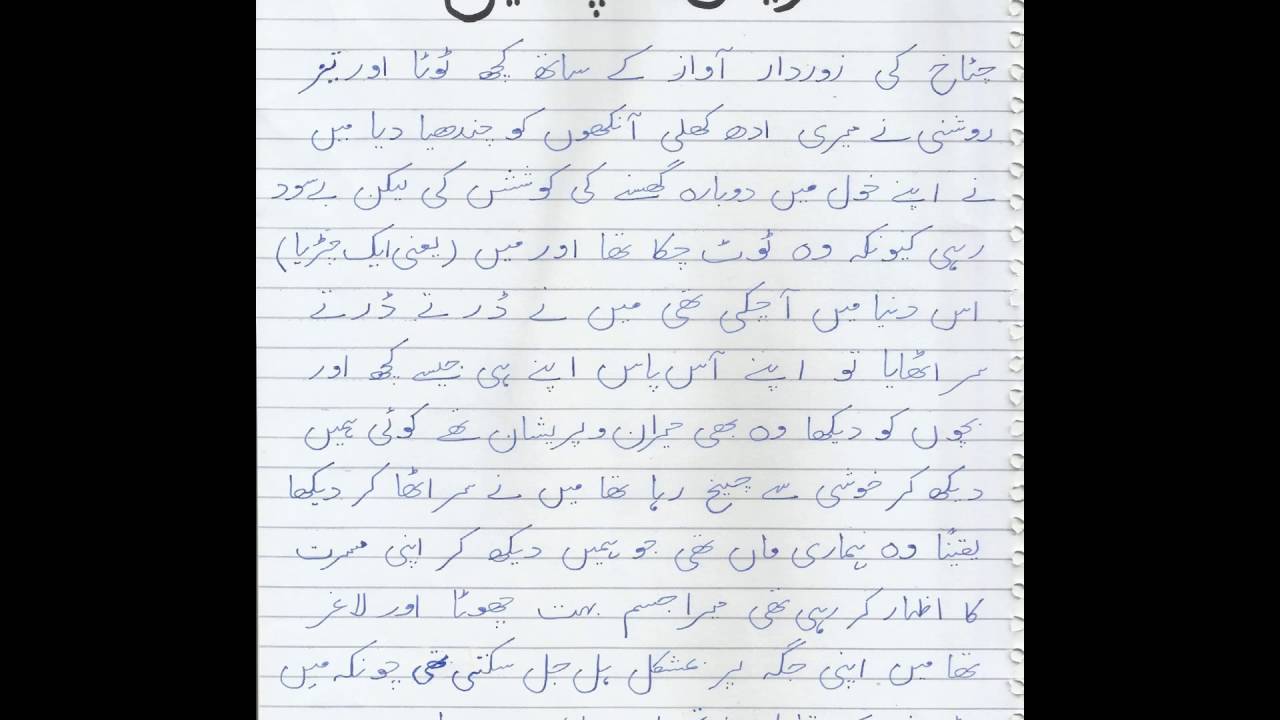 چٹاخ کی زوردار آواز کے ساتھ کچھ ٹوٹا اور تیز
روشنی نے میری ادھ کھلی آنکھوں کو چندھیا دیا میں
نے اپنے خول میں دوبارہ گھسنے کی کوشش کی لیکن بے سود
رہی کیونکہ وہ ٹوٹ چکا تھا اور میں (یعنی ایک چڑیا)
اس دنیا میں آ چکی تھی میں نے ڈرتے ڈرتے
سر اٹھایا تو اپنے آس پاس اپنے ہی جیسے کچھ اور
بچوں کو دیکھا وہ بھی حیران و پریشان تھے کوئی ہمیں
دیکھ کر خوشی سے چیخ رہا تھا میں نے سر اٹھا کر دیکھا
یقینًا وہ ہماری ماں تھی جو ہمیں دیکھ کر اپنی مسرت
کا اظہار کر رہی تھی میرا جسم بہت چھوٹا اور لاغر
تھا میں اپنی جگہ پر بمشکل ہل جل سکتی تھی چونکہ میں